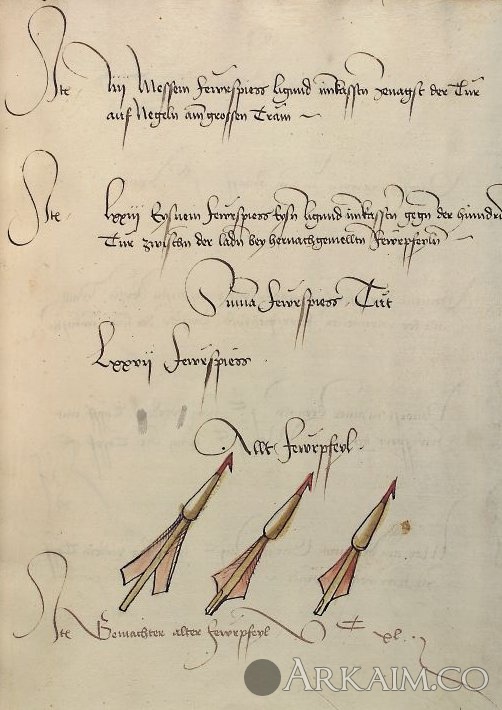 Ite iiij Messein fewrspiess ligend inkassten zenagst der Tür
auf Negeln am grossen Tram
Ite Lxxiij Eysnein fewrspiess Eysn ligend inkassten gegen der hinndern
Tür zwischn der ladn bey hernachgemellten fewrpfeyln
Suma fewrspiess Tut
Lxxvij fewrspiess
Allt fewrpfeyl
Ite Gemachter alter fewrpfeyl v C xl
ARKAIM.CO